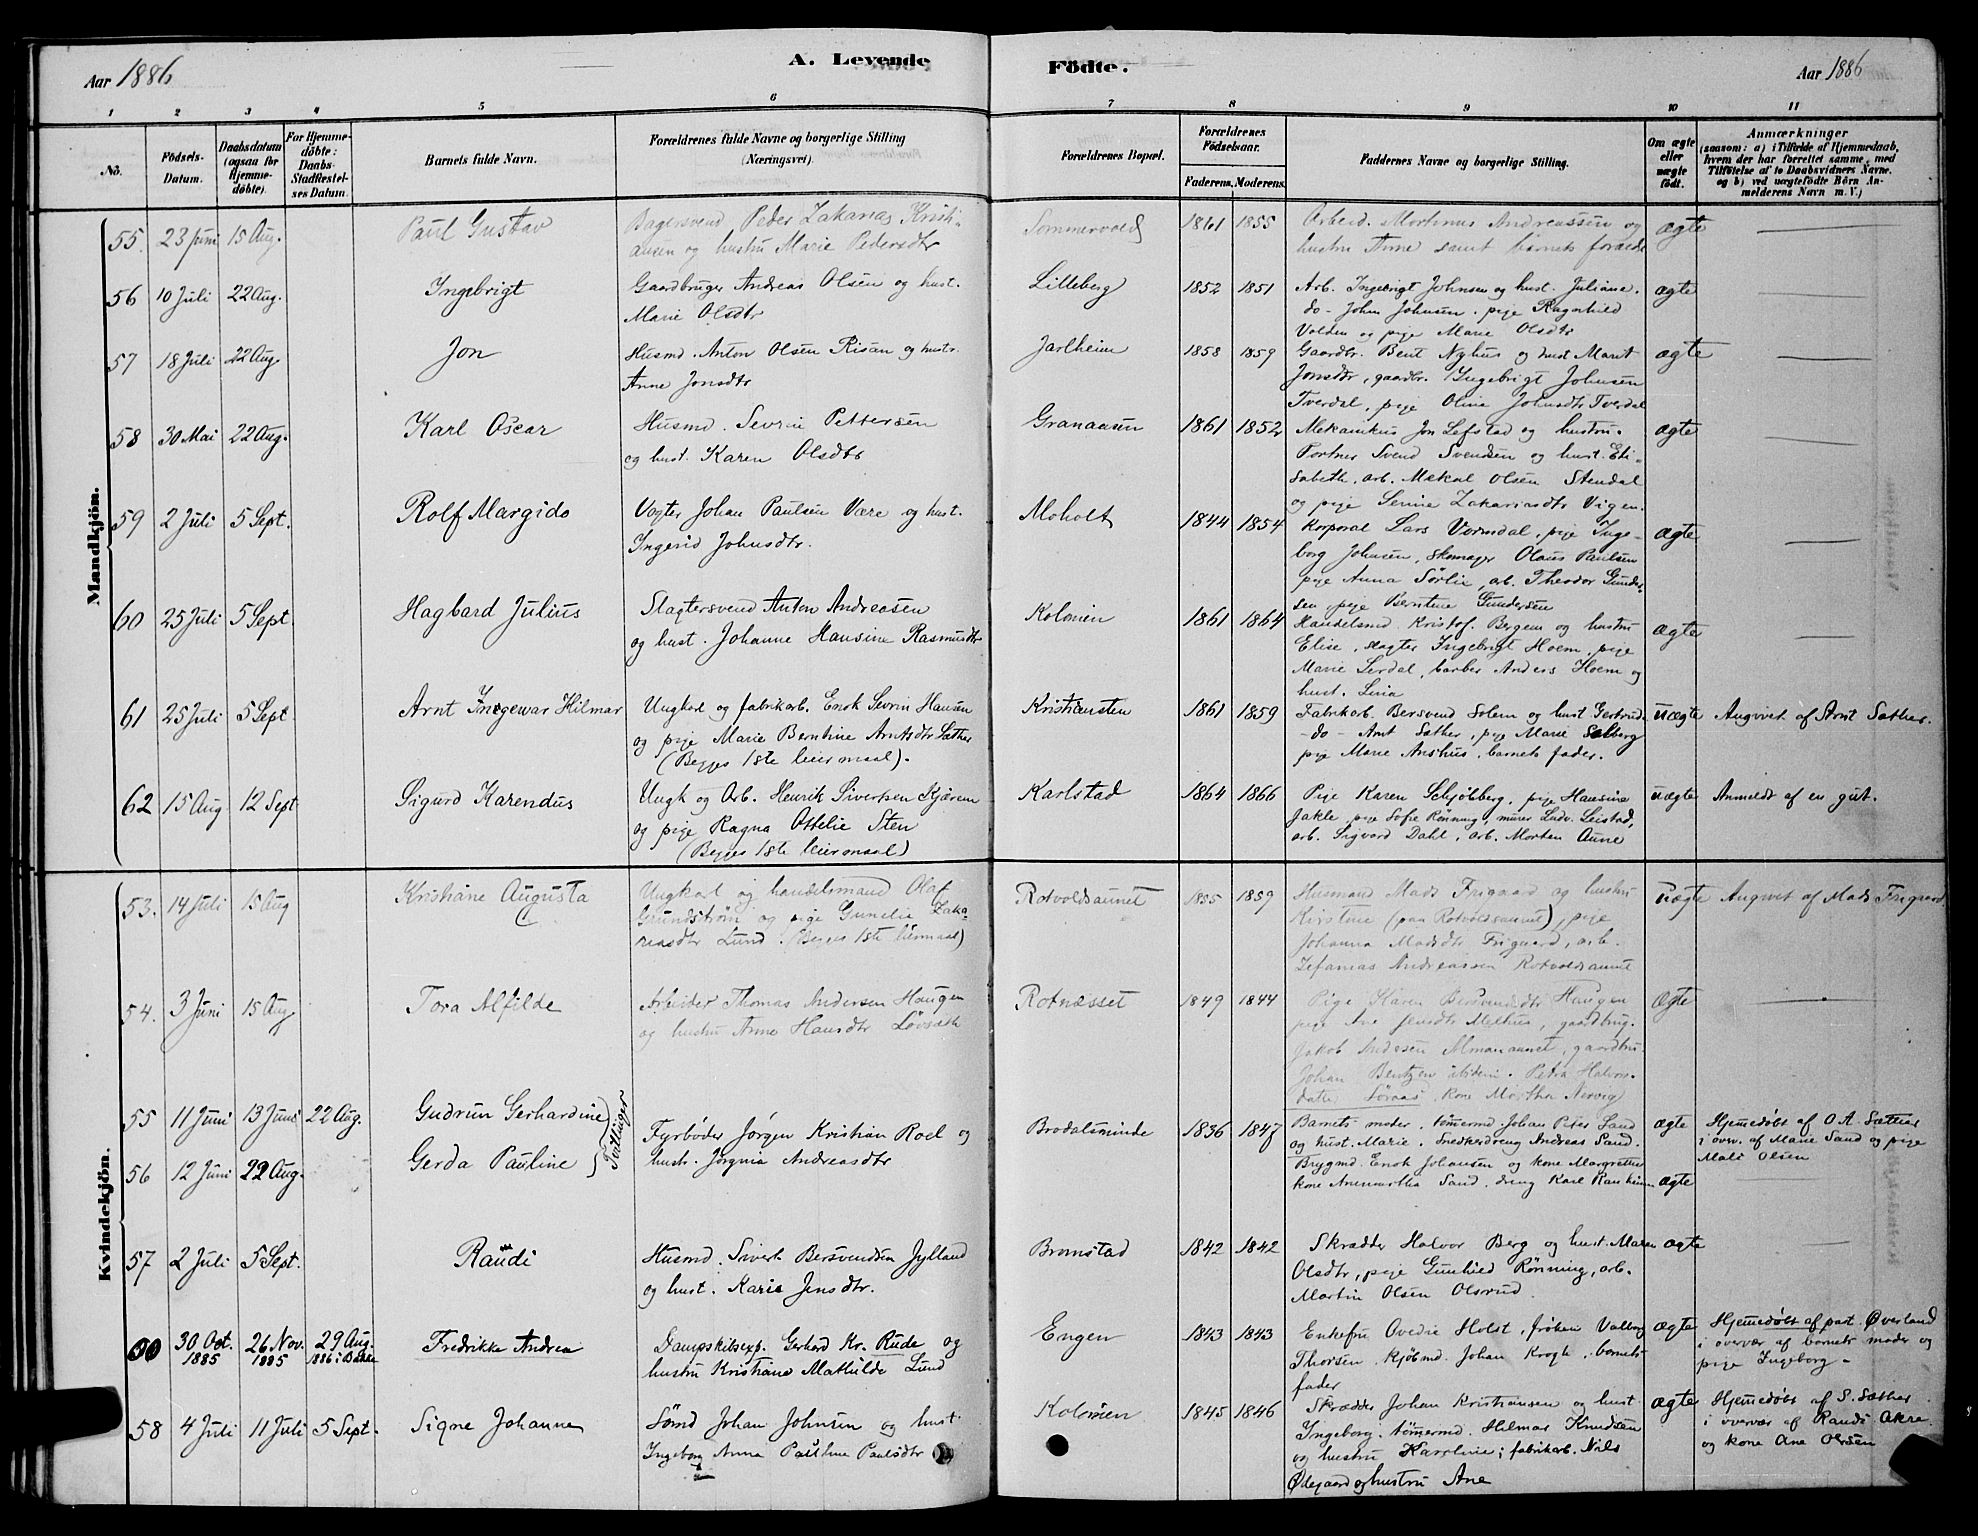 Aar 1886
A. Levende
Födte.
Aar 1886
1 2 3 4 5 6 7 8 9 10 11
No.
Födsels-Datum.
Daabsdatum (ogsaa for Hjemme-döbte).
For Hjemme-döbte: Daabs-Stadfæstelses Datum.
Barnets fulde Navn.
Forældrenes fulde Navne og borgerlige Stilling (Næringsvei).
Forældrenes Bopæl.
Forældrenes Födselsaar.
Faderens. Moderens.
Faddernes Navne og borgerlige Stilling.
Om ægte eller uægte födt.
Anmærkninger
(saasom: a) i Tilfælde af Hjemmedaab, hvem der har forrettet samme, med Tilföielse af to Daabsvidners Navne, og b) ved uægtefödte Börn Anmelderens Navn m. V.)
Mandkjön.
55. 23 Juni 15 Aug. Paul Gustav
Bagersvend Peder Zakarias Kristi-
ansen og hustru Marie Pedersdtr
Sommervold 1861 1855
Arbeid. Martinus Andreassen og
hustru Anne samt barnets forældr
ægte
56 10 Juli 22 Aug. Ingebrigt
Gaardbruger Andreas Olsen og hust.
Marie Olsdtr
Lilleberg 1852 1851
Arb. Ingebrigt Johnsen og hust. Juliane.
do - John Johnsen. pige Ragnhild
Volden og pige Marie Olsdtr
ægte
57 18 Juli 22 Aug. Jon
Husmd. Anton Olsen Risan og hustr.
Anne Jonsdtr
Jarlheim 1858 1859
Gaardbr. Bent Nyhus og hust Marit
Jonsdtr, gaardbr. Ingebrigt Johnsen
Tverdal, pige Olina Johnsdtr Tverdal
ægte
58 30 Mai 22 Aug. Karl Oscar
Husmd. Sevrin Pettersen
og hust. Karen Olsdtr
Granaasen 1861 1852
Mekanikus Jon Lefstad og hustru.
Portner Svend Svendsen og hust. Eli-
sabeth, arb. Mekal Olsen Stendal
og pige Serine Zakariasdtr Vigen.
ægte
59 2 Juli 5 Sept. Rolf Margido
Vogter Johan Paulsen Være og hust.
Ingerid Johnsdtr.
Moholt 1844 1854
Korporal Lars Vormdal, pige Inge-
borg Johnsen, skomager Olaus Paulsen
pige Anna Sørlie, arb. Theodor Gunder-
sen, pige Berntine Gundersen
ægte
60 25 Juli 5 Sept. Hagbard Julius
Slagtersvend Anton Andreasen
og hust. Johanne Hansine Rasmusdtr
Kolonien 1861 1864
Handelsmd. Kristof. Bergem og hustru
Elise, slagter Ingebrigt Hoem, pige
Marie Lerdal, barber Anders Hoem og
hust. Lina
ægte
61 25 Juli 5 Sept Arnt Ingewar Hilmar
Ungkarl og fabrikarb. Enok Sevrin Hansen
og pige Marie Berntine Arntsdtr Sæther
(Begges 1ste leiermaal).
Kristiansten 1861 1859
Fabrikarb. Bersvend Solem og hust Gertrud-
-do- Arnt Sæther, pige Marie Solberg
pige Marie Aashus, barnets fader.
uægte Angivet af Arnt Sæther.
62 15 Aug 12 Sept Sigurd Karendus
Ungk og Arb. Henrik Sivertsen Kjærem
og pige Ragna Ottelie Sten
(Begges 1ste leiermaal)
Karlstad 1864 1866
Pige Karen Schjølberg, pige Hansine
Jakle, pige Sofie Rønning, murer Ludv. Leistad,
arb. Sigvard Dahl, arb. Morten Aune
uægte Anmeldt af en gut.
Kvindekjön.
53. 14 Juli 15 Aug Kristiane Augusta
Ungkarl og handelsmand Olaf
Grundstrøm og pige Gunelie Zaka-
riasdtr Lund. (Begges 1ste leiermaal)
Rotvoldsaunet 1855 1859
Husmand Mads Frigaard og hustru
Kirstine (paa Rotvoldsaunet), pige
Johanna Madsdtr Frigaard, arb.
Zefanias Andreassen Rotvoldsaunet
uægte Angivet af Mads Frigaard
54. 3 Juni 15 Aug Tora Alfilde
Arbeider Thomas Andersen Haugen
og hustru Anne Hansdtr Løvsæth
Rotnæsset 1849 1844
Pige Karen Bersvendsdtr Haugen
pige Ane Jensdtr Melhus, gaardbrug.
Jakob Andersen Almanaunet, gaardbru.
Johan Bentzen ibidem. Petra Halvors-
datter Søraas, kone Martha Nervig
ægte
55 11 Juni 13 Juni 22 Aug. Gudrun Gerhardine
56 12 Juni 22 Aug. Gerda Pauline
Tvillinger
Fyrbøder Jørgen Kristian Roel og
hustr. Jørgina Andreasdtr
Brodalsminde 1836 1847
Barnets moder, tømermd. Johan Peter Sand
og hust. Marie. Snekkerdreng Andreas Sand.
Brygmd. Enok Johansen og kone Margrethe
kone Anemartha Sand, dreng Karl Ranheim
ægte
ægte
Hjemedøbt af O. A. Sættes
i overv. af Marie Sand og pige
Mali Olsen
57 2 Juli 5 Sept. Randi
Husmd. Sivert Bersvendsen Jylland
og hust. Karis Jensdtr.
Bromstad 1842 1842
Skrædder Halvor Berg og hust. Maren
Olsdtr, pige Gunhild Rønning, arb.
Martin Olsen Olsrud.
ægte
30 Oct. 1885 26 Nov. 1885 29 Aug. 1886 i Bakke Fredrikke Andrea
Dampskibsexp. Gerhard Kr. Rude og
hustru Kristiane Mathilde Lund
Engen 1843 1843
Enkefru Ovedie Holst, frøken Valborg
Thorsen, kjøbmd. Johan Krogh, barnets
fader
ægte
Hjemedøbt af past. Øverland
i overvær af barnets moder og
pige Ingeborg -
58 4 Juli 11 Juli 5 Sept. Signe Johanne
Sømd Johan Johnsen og hust
Ingeborg Anna Pauline Paulsdtr
Kolonien 1845 1846
Skrædder Johan Kristiansen og hust
Ingeborg. Tømermd. Hilmar Knudsen
og hustru Karoline; fabrikarb. Nils
Ødegaard og hustru Ane
ægte
Hjemedøbt af S. Sæther
i overvær af Randi Akre
og kone Ane Olsen